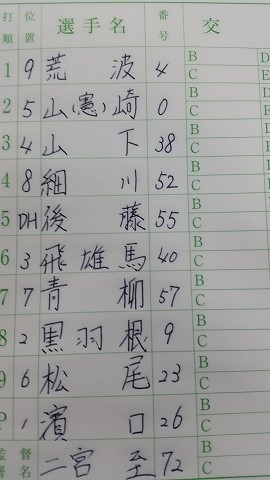 打順 位置 選手名 番号 交
1 9 荒波 4 B C D
2 5 山(憲)崎 0 B C D E
3 4 山下 38 B C D E
4 8 細川 52 B C D E
5 DH 後藤 55 B C D E
6 3 飛雄馬 40 B C D E
7 7 青柳 57 B C D E
8 2 黒羽根 9 B C D
9 6 松尾 23 B C
P 1 濱口 26 B C
監督署名 二宮至 72